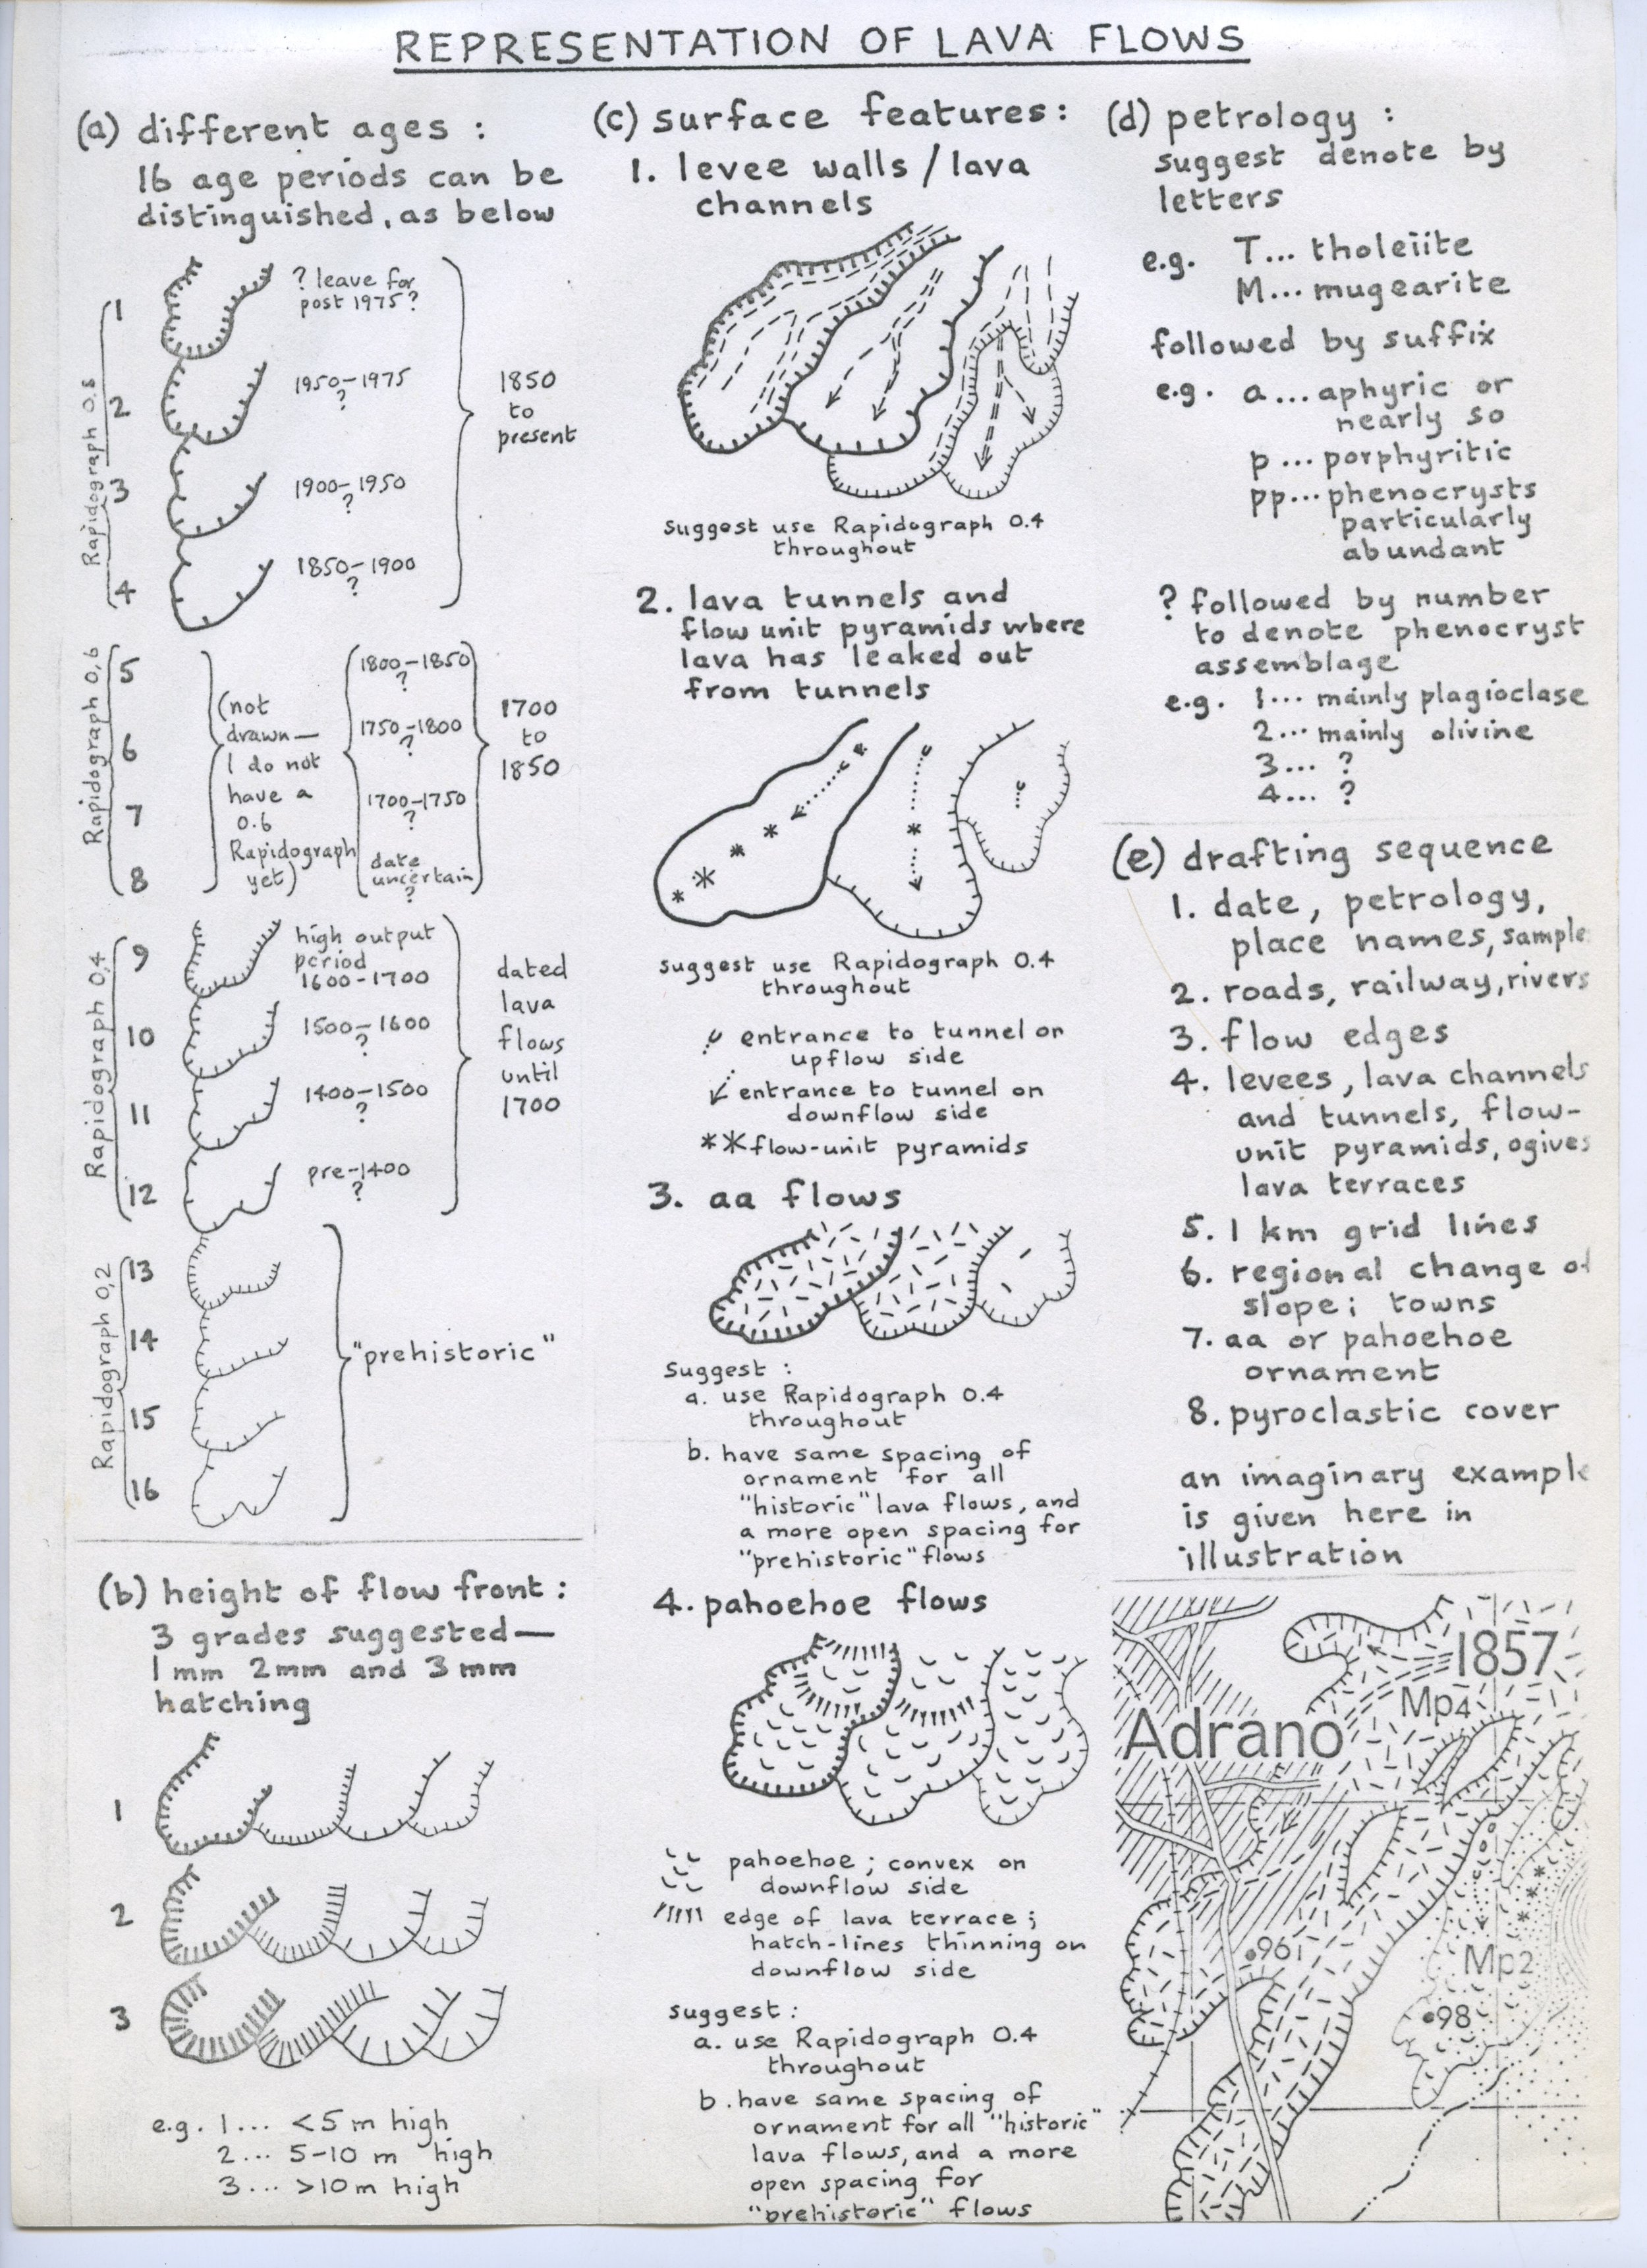 REPRESENTATION OF LAVA FLOWS
(a) different ages :
16 age periods can be
distinguished, as below
Rapidograph 0.8
1
? leave for
post 1975?
2
1950-1975
?
3
1900-1950
?
4
1850-1900
?
1850
to
present
Rapidograph 0,6
5
6
7
8
(not
drawn—
I do not
have a
0.6
Rapidograph
yet)
1800-1850
?
1750-1800
?
1700-1750
?
date
uncertain
?
1700
to
1850
Rapidograph 0,4
9
high output
period
1600-1700
10
1500-1600
?
11
1400-1500
?
12
pre-1400
?
dated
lava
flows
until
1700
Rapidograph 0,2
13
14
15
16
"prehistoric"
(b) height of flow front :
3 grades suggested—
1 mm 2mm and 3 mm
hatching
1
2
3
e.g. 1... <5 m high
2... 5-10 m high
3... >10 m high
(c) surface features :
1. levee walls / lava
channels
suggest use Rapidograph 0.4
throughout
2. lava tunnels and
flow unit pyramids where
lava has leaked out
from tunnels
suggest use Rapidograph 0.4
throughout
entrance to tunnel on
upflow side
entrance to tunnel on
downflow side
** flow-unit pyramids
3. aa flows
Suggest :
a. use Rapidograph 0.4
throughout
b. have same spacing of
ornament for all
"historic" lava flows, and
a more open spacing for
"prehistoric" flows
4. pahoehoe flows
pahoehoe ; convex on
downflow side
edge of lava terrace ;
hatch-lines thinning on
downflow side
suggest :
a. use Rapidograph 0.4
throughout
b. have same spacing of
ornament for all "historic"
lava flows, and a more
open spacing for
"prehistoric" flows
(d) petrology :
suggest denote by
letters
e.g. T... tholeiite
M... mugearite
followed by suffix
e.g. a... aphyric or
nearly so
p... porphyritic
pp... phenocrysts
particularly
abundant
? followed by number
to denote phenocryst
assemblage
e.g. 1... mainly plagioclase
2... mainly olivine
3... ?
4... ?
(e) drafting sequence
1. date, petrology,
place names, sample
2. roads, railway, rivers
3. flow edges
4. levees, lava channels
and tunnels, flow-
unit pyramids, ogives
lava terraces
5. 1 km grid lines
6. regional change of
slope; towns
7. aa or pahoehoe
ornament
8. pyroclastic cover
an imaginary example
is given here in
illustration
1857
Mp4
Adrano
96
Mp2
98